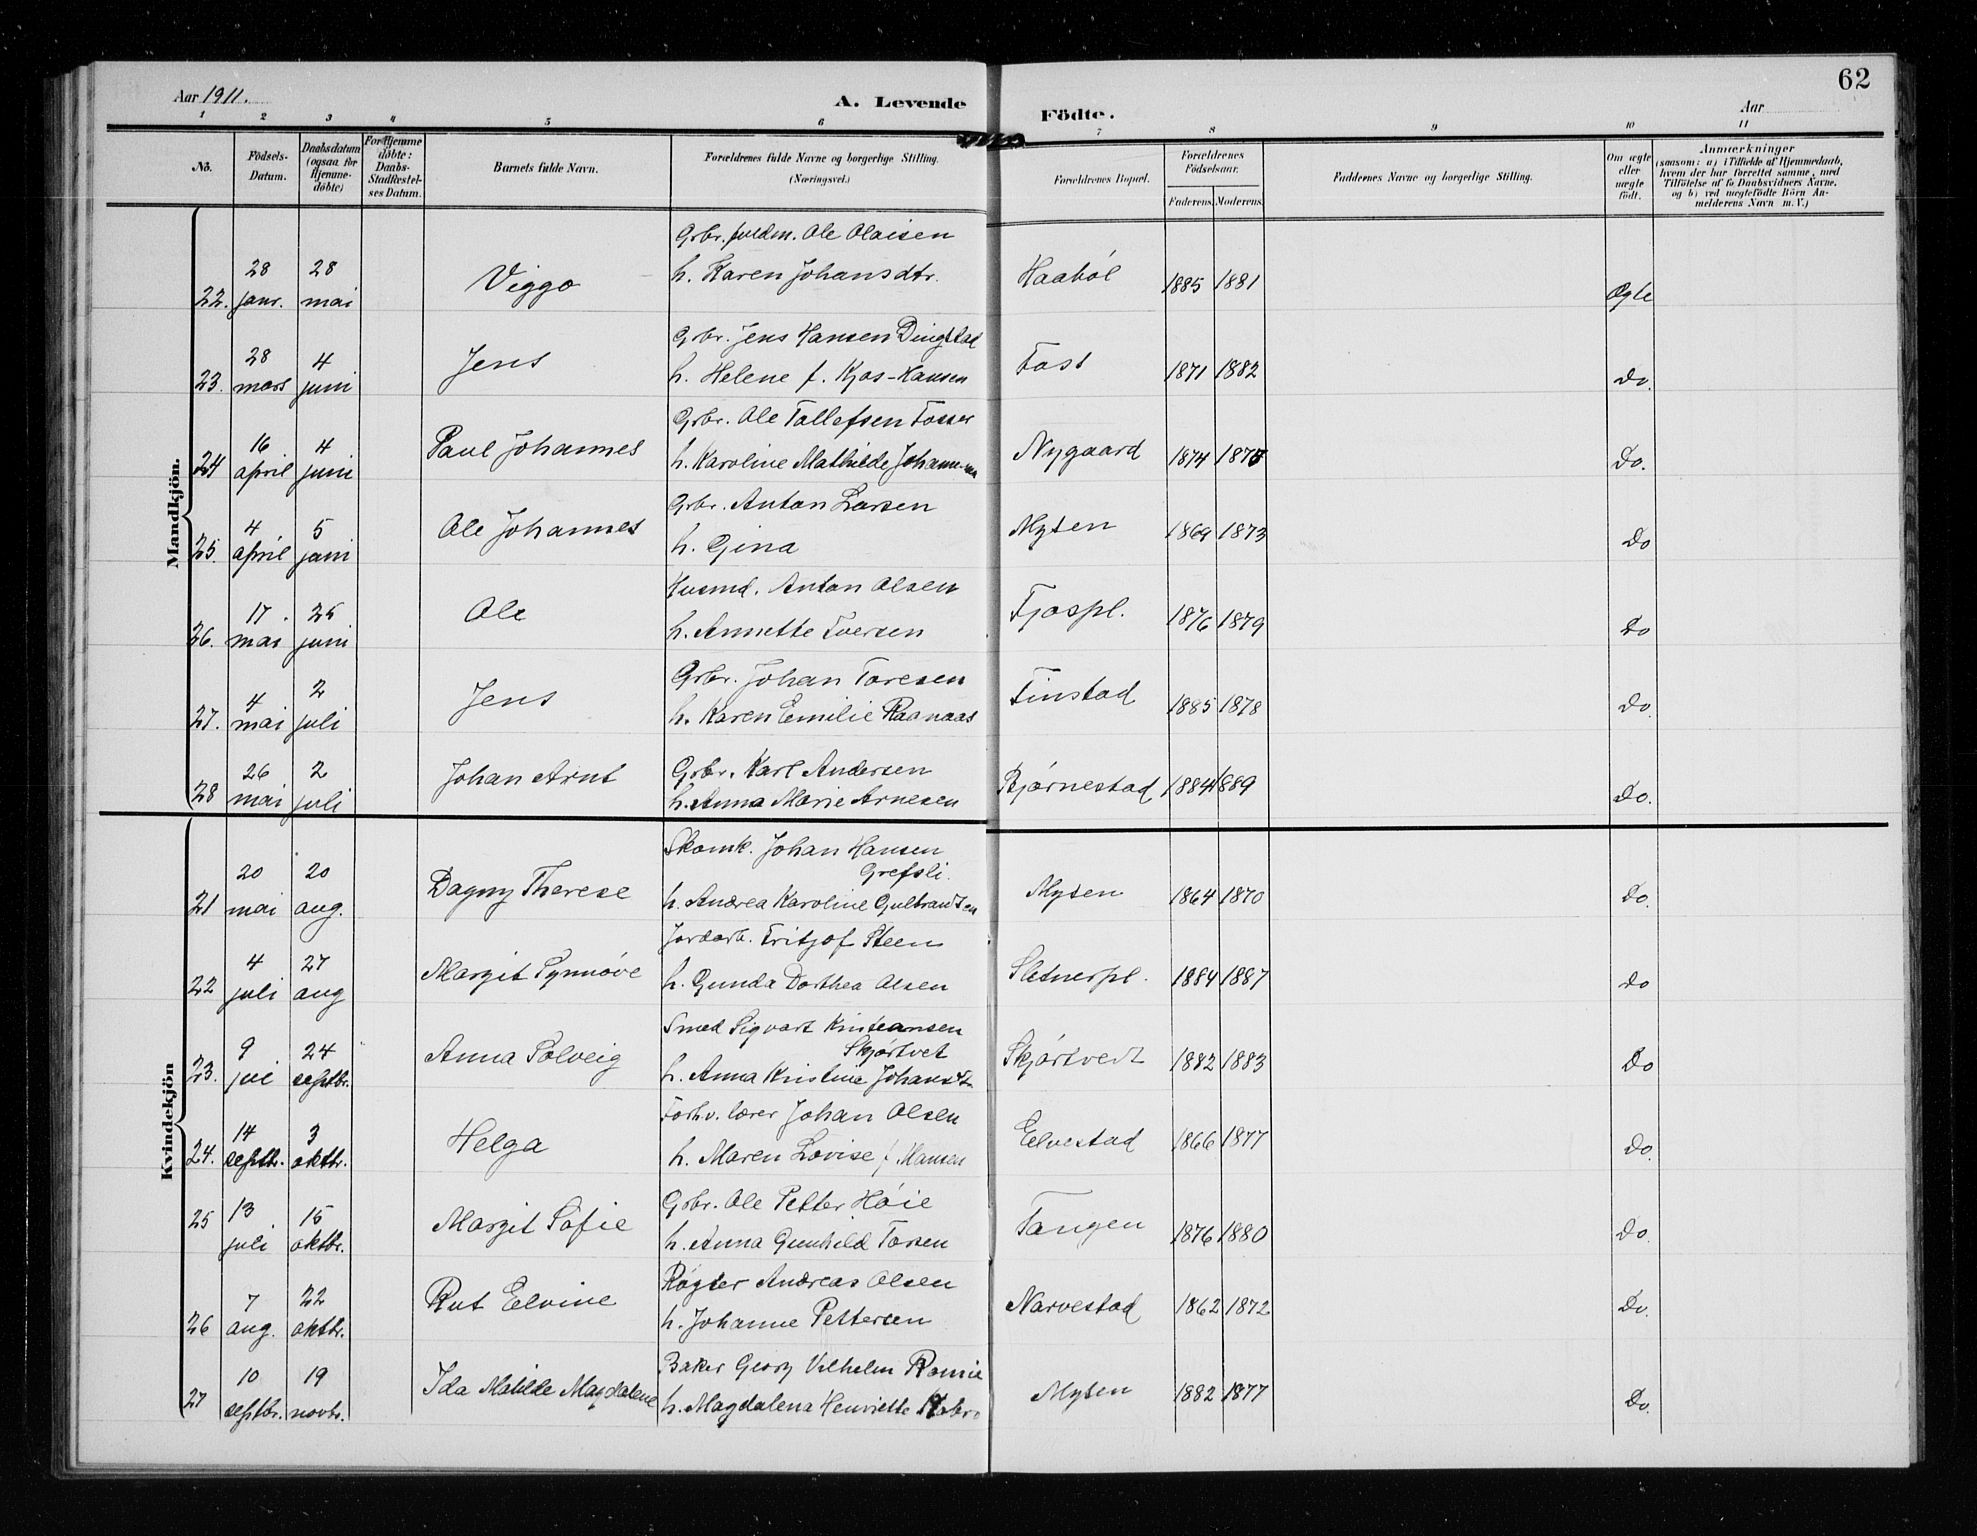 62
Aar 1911.
A. Levende Födte.
Aar
1 2 3 4 5 6 7 8 9 10 11
No.
Födsels-Datum.
Daabsdatum (ogsaa for Hjemmedöbte)
For Hjemmedöbte: Daabs-Stadfæstelses Datum.
Barnets fulde Navn.
Forældrenes fulde Navne og borgerlige Stilling. (Næringsvei.)
Forældrenes Bopæl.
Forældrenes Födselsaar.
Faderens. Moderens.
Faddernes Navne og borgerlige Stilling.
Om ægte eller uægte födt.
Anmærkninger (saasom: a) i Tilfælde af Hjemmedaab, hvem der har forrettet samme, med Tilföielse af to Daabsvidners Navne, og b) ved uægtefödte Börn Anmelderens Navn m. V.)
Mandkjön.
Grbr. Ole Olaisen
22. 28 janr. 28 mai Viggo h. Karen Johansdtr. Haaböl 1885 1881 Ægte
Gbr. Jens Hansen Dingstad
23. 28 mars 4 juni Jens h. Helene f. Kjos-Hansen 1871 1882 Do.
Gbr. Ole Tollefsen Fosser
24 16 april 4 juni Paul Johannes h. Karoline Mathilde Nygaard 1874 Do.
Gbr. Anton Larsen
25. 4 april 5 juni Ole Johannes h. Gina Mysen 1869 1873 Do
Husmd. Anton Olsen
26. 17 mai 25 juni Ole h. Annette Iversen Fjospl. 1876 1879 Do
Grbr. Johan Toresen
27. 4 mai 2 juli Jens h. Karen Emilie Raanaas Finstad 1885 1878 Do
Gbr. Karl Andersen
28 26 mai 2 juli Johan Arnt h. Anna Marie Arnesen Bjørnestad 1884 1889 Do.
Kvindekjön
Skomk. Johan Hansen
Grefsli.
21 20 mai 20 aug. Dagny Therese h. Andrea Karoline Gulbrandsen Mysen 1864 1870 Do.
Jordarb. Fritjof Steen
22 4 juli 27 aug Margit Synnøve h. Gunda Dorthea Olsen Sletnerpl. 1884 1887 Do
Smed Sigvart Kristiansen
Skjørtvet
23. 9 24 septbr. Anna Solveig h. Anna Kristine Skjørtvedt 1882 1883 Do
Forhv. lærer Johan Olsen
24. 14 septbr. 3 oktbr. Helga h. Maren Lovise f Hansen Eelvestad 1866 1877 Do.
Gbr. Ole Petter Høie
25 13 juli 15 oktbr. Margit Sofie h. Anna Gunhild Tangen 1876 1880 Do.
Røgter Andreas Olsen
26 7 aug. 22 oktbr. Rut Elvine h. Johanne Pettersen Narvestad 1862 1872 Do.
Baker Georg Vilhelm
27 10 septbr. 19 novbr. Ida Matilde Magdalene h. Magdalena Henriette Mysen 1882 1877 Do.